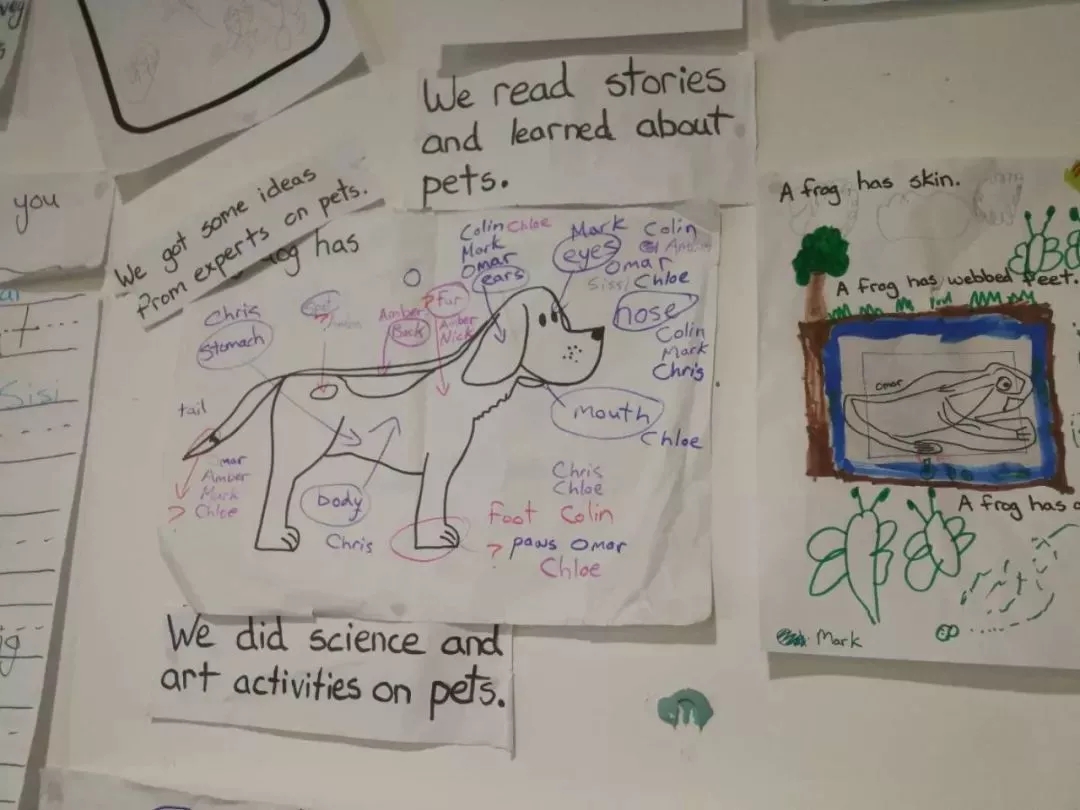 We read stories
and learned about
pets.
you
We got some ideas
from experts on pets.
has
Colin Chloe
Mark
Omar
ears
Mark
eyes
Colin
Omar
Sissi Chloe
nose
Colin
Mark
Chris
mouth
Chloe
Chris
Stomach
Spot
?
Amber
Back
? Fur
Amber
Nick
tail
mar
Amber
Mark
? Chloe
body
Chris
Chris
Chloe
Foot Colin
? paws Omar
Chloe
We did science and
art activities on pets.
Sisi
A frog has skin.
A frog has webbed feet.
omar
A frog has
Mark